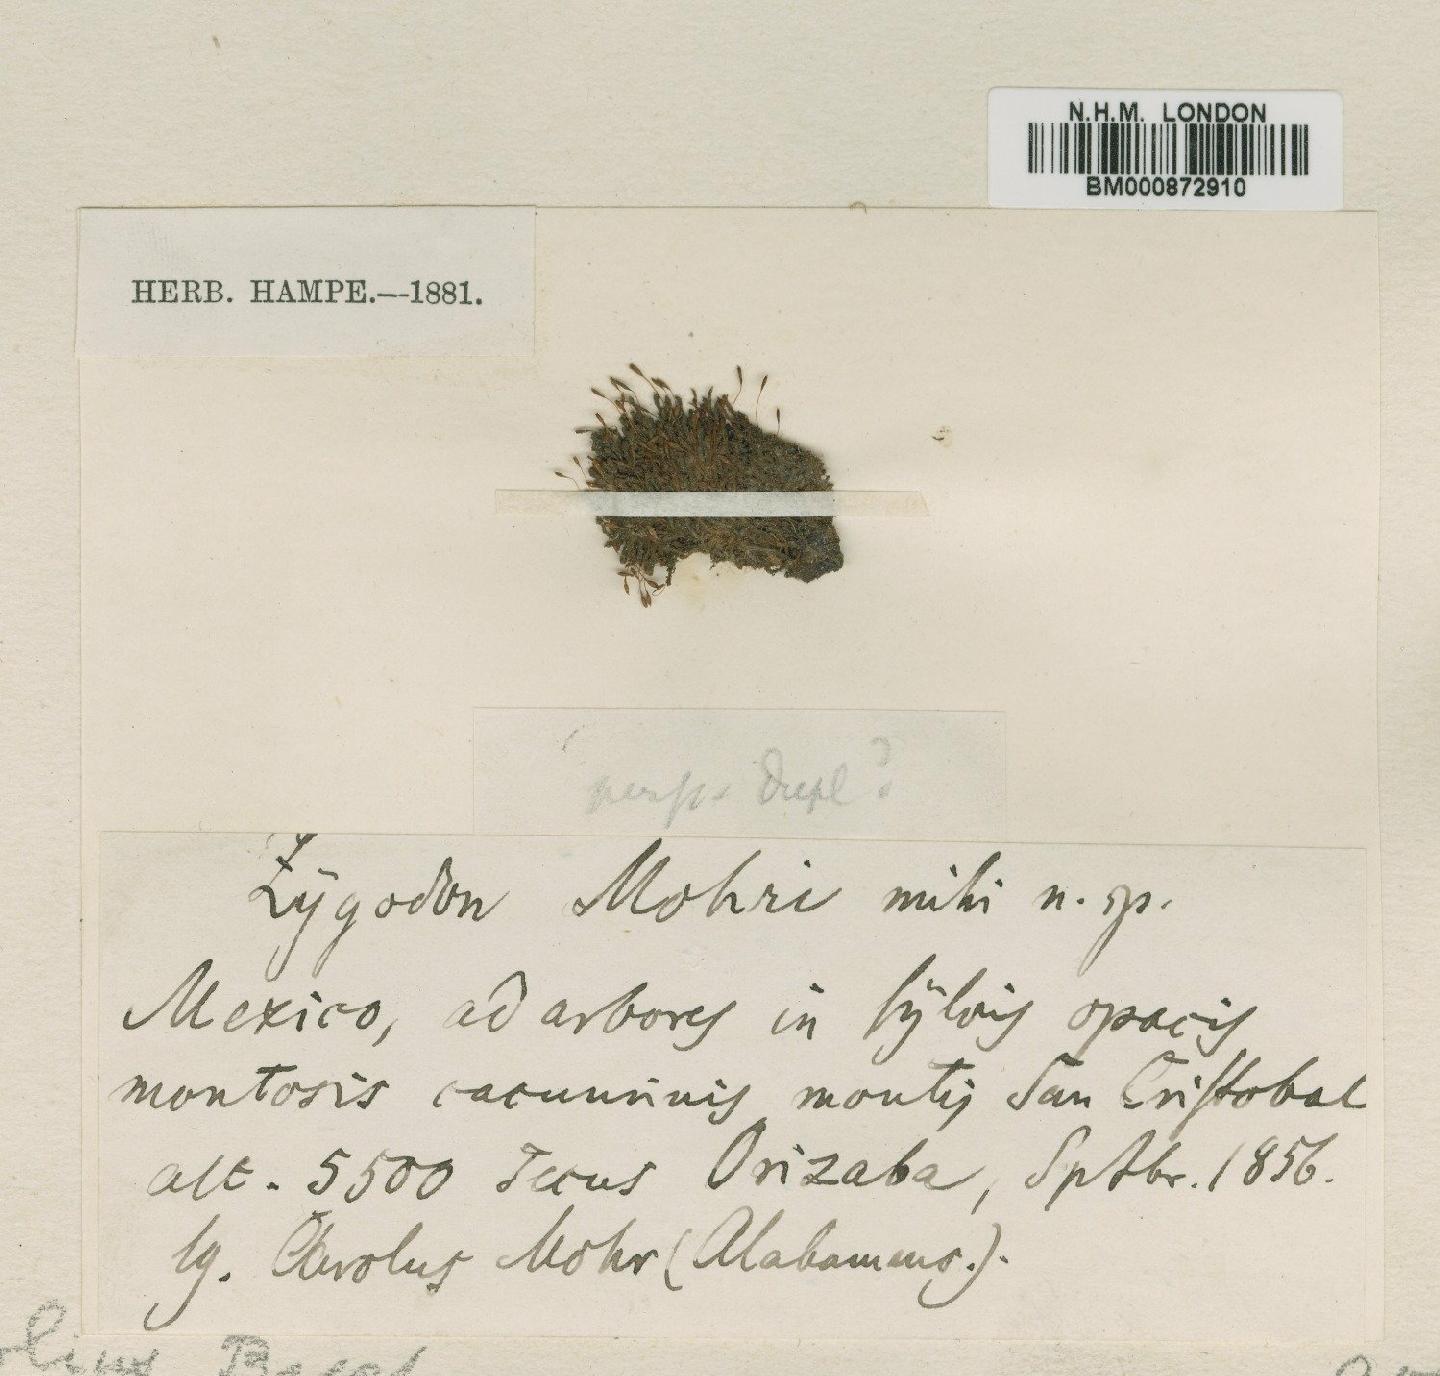 N.H.M. LONDON
BM000872910
HERB. HAMPE.—1881.
Dupl?
Zÿgodon Mohri mihi n. sp.
Mexico, ad arbores in sÿlvis opacis
montosis cacuminis montis San Cristobal
alt. 5500 secus Orizaba, Sptbr. 1856.
lg. Carolus Mohr (Alabamens.).